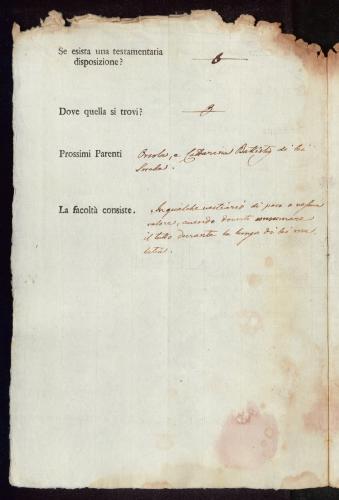 Se esista una testamentaria
disposizione?
Dove quella si trovi?
Prossimi Parenti Orsola, e Catterina Battistig di lei
Sorelle.
La facoltà consiste. In qualche vestiario di poco o nessun
valore, avendo dovuto consumare
il tutto durante la lunga di lei ma-
latia